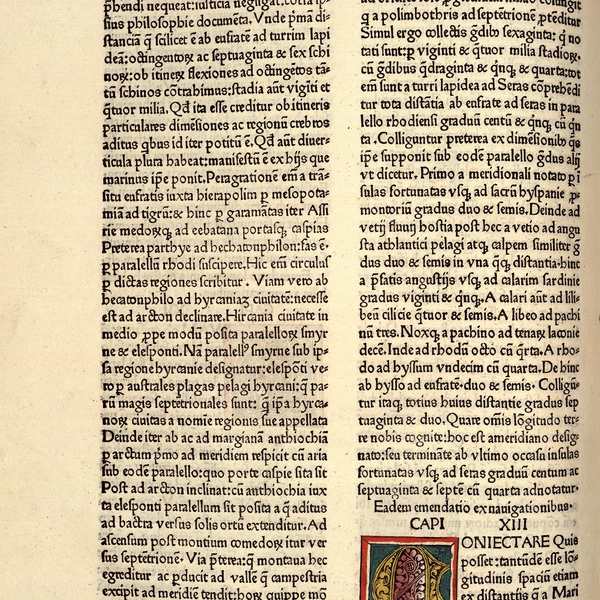 p̄hendi nequeat:iusticia negligat.totia ip
sius philosophie documēta. Vnde p̄ma di
stanciā q̄ scilicet ē ab eufratē ad turrim lapi
deā:octingentoꝝ ac septuaginta & sex schi
noꝝ:ob itineꝝ flexiones ad octingētos tā-
tū schinos cōtrabimus:stadia aūt viginti et
q̄tuor milia. Qd̄ ita esse creditur ob itineris
particulares dimēsiones ac regionū crebros
aditus q̄bus id iter potitū ē. Qd̄ aūt diuer-
ticula plura habeat:manifestū ē ex hijs que
marinus ip̄e ponit. Peragrationē em̄ a trā-
situ eufratis iuxta hierapolim ꝑ mesopota-
miā ad tigrū:& hinc ꝑ garamātas iter Assi
rie medoꝝq̨ ad ecbatana portasq̨ caspias
Preterea parthye ad hechatonphilon:fas ē-
ꝑ parallelū rhodi suscipere. Hic em̄ circulus
ꝑ dictas regiones scribitur . Viam vero ab
hecatonphilo ad hyrcaniaꝫ ciuitatē:necesse
est ad arcton declinare. Hircania ciuitate in
medio ꝓpe modū posita paralleloꝝ smyr
ne & elesponti. Nā parallel⁹ smyrne sub ip-
sa regione hyrcanie designatur:elespōti ve-
ro ꝑ australes plagas pelagi hyrcani:q̄ pa-
rū magis septētrionales sunt: q̄ ip̄a hyrca-
noꝝ ciuitas a nomīe regionis sue appellata
Deinde iter ab ac ad margianā anthiochiā
ꝑ arctum p̄mo ad meridiem respicit cū aria
sub eodē paralello:quo porte caspie sita sit
Post ad arcton inclinat:cū anthiochia iux
ta elesponti parallelum sit posita a q̄ aditus
ad bactra versus solis ortū extenditur. Ad
ascensum post montium comedoꝝ itur ver
sus septētrionē. Via p̄terea:q̄ montana hec
egreditur ac ꝓducit ad vallē q̄ campestria
excipit ad meridiē tendit:hoꝝ quippe mō
q a polimbothris ad septētrionē ꝓtēditur
Simul ergo collectis ḡdib⁹ sexaginta: q̄ no
tati sunt:ꝑ viginti & q̄tuor milia stadioꝝ.
cū ḡdibus q̄draginta & q̄nq̨ & quarta:tot
em̄ sunt a turri lapidea ad Seras cōprehēdi
tur tota distātia ab eufrate ad seras in para
lello rhodiensi graduū centū & q̄nq̨ cū q̄n
ta . Colliguntur preterea ex dimēsionib⁹ q̄s
ip̄e supponit sub eodē paralello ḡdus alij
vt dicetur. Primo a meridionali notato ꝑ i
sulas fortunatas vsq̨ ad sacrū hyspanie ꝓ-
montoriū gradus duo & semis. Deinde ad
vetij fluuij hostia post hec a vetio ad angu
sta athlantici pelagi atq̨ calpem similiter ḡ
dus duo & semis in vna q̄q̨ distantia·hinc
a p̄fatis angustijs vsq̨ ad calarim sardinie
gradus viginti & q̄nq̨. A calari aūt ad lili-
beū cilicie q̄tuor & semis. A libeo ad pachi
nū tres. Noxq̨ a pachino ad tenaꝝ laconie
decē. Inde ad rhodū octō cū q̄rta. A rho-
do ad hyssum vndecim cū quarta. De hinc
ab hysso ad eufratē·duo & semis· Colligū-
tur itaq̨ totius huius distantie gradus sep
tuaginta & duo. Quare om̄is lōgitudo ter-
re nobis cognite:hoc est ameridiano desig-
nato:seu terminate ab vltimo occasu insulas
fortunatas vsq̨ ad seras graduū centum ac
septuaginta & septē cū quarta adnotatur·
Eadem emendatio ex nauigationibus·
CAPI XIII
CONIECTARE Quis
posset:tantūdē esse lō-
gitudinis spaciū etiam
ex distantijs q̄ a Mari